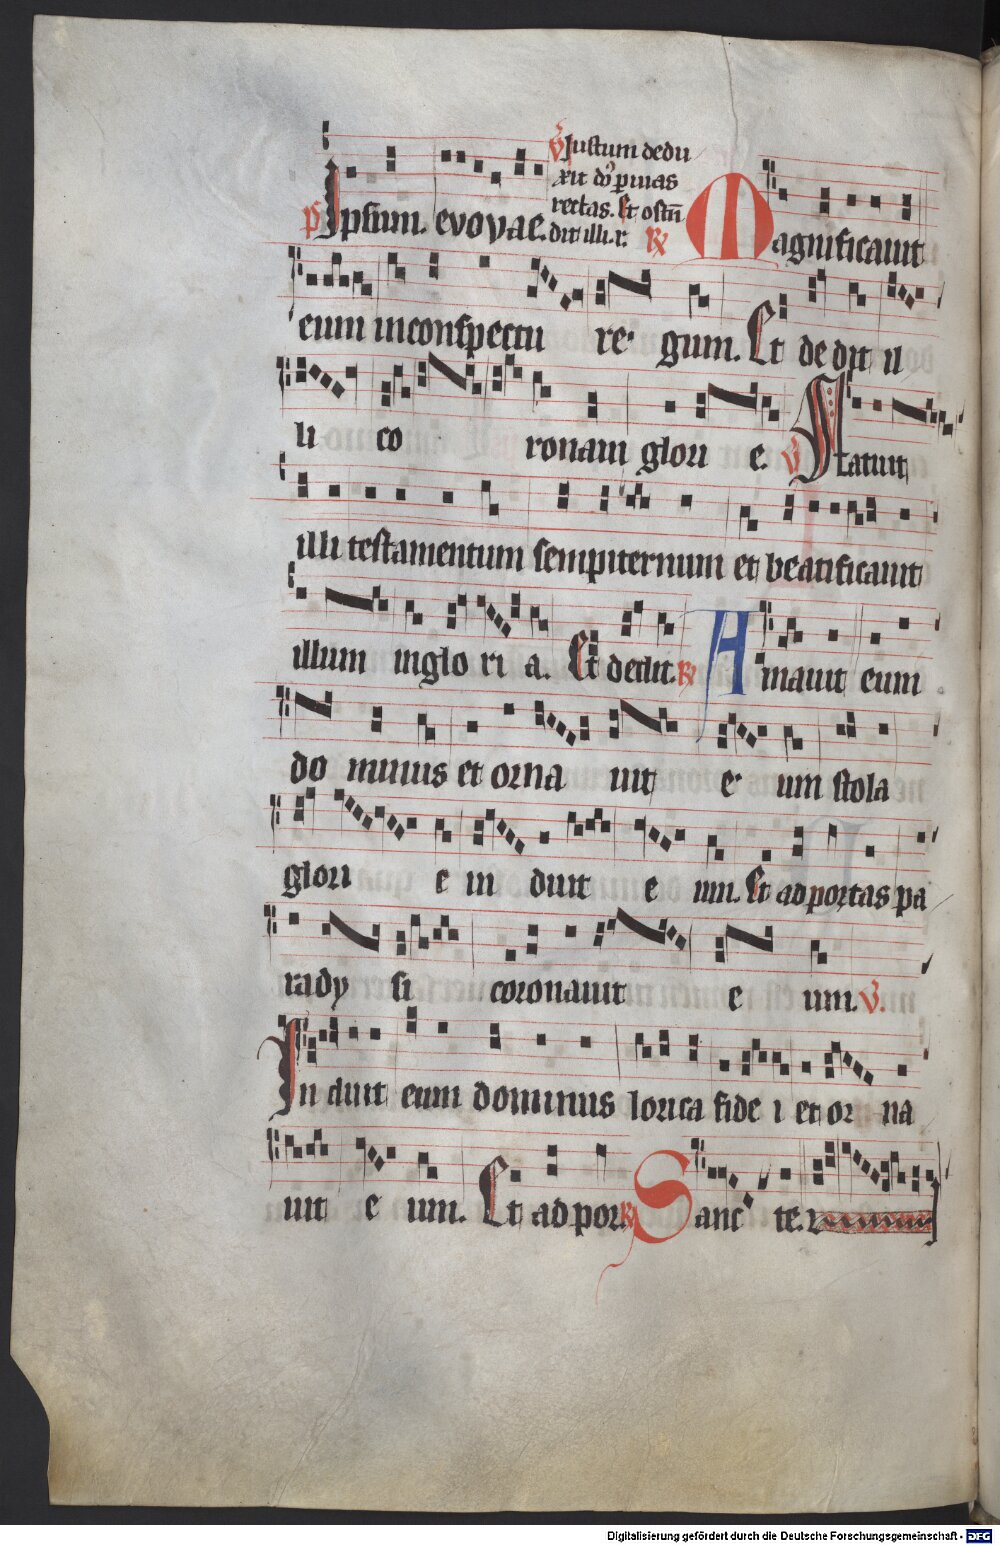 ℣ Justum dedu
xit dns p̱ uias
rectas. Et ostn̄
dit illi. r.
ps Ipsum. evovae. ℟ Magnificauit
eum in conspectu re gum. Et de dit il
li co ronam glori e. ℣ Statuit
illi testamentum sempiternum et beatificauit
illum in glo ri a. Et dedit. ℟ Amauit eum
do minus et orna uit e um stola
glori e in duit e um. Et ad portas pa
rady si coronauit e um. ℣.
In duit eum dominus lorica fide i et or na
uit e um. Et ad por ℟ Sanc te.
Digitalisierung gefördert durch die Deutsche Forschungsgemeinschaft - DFG